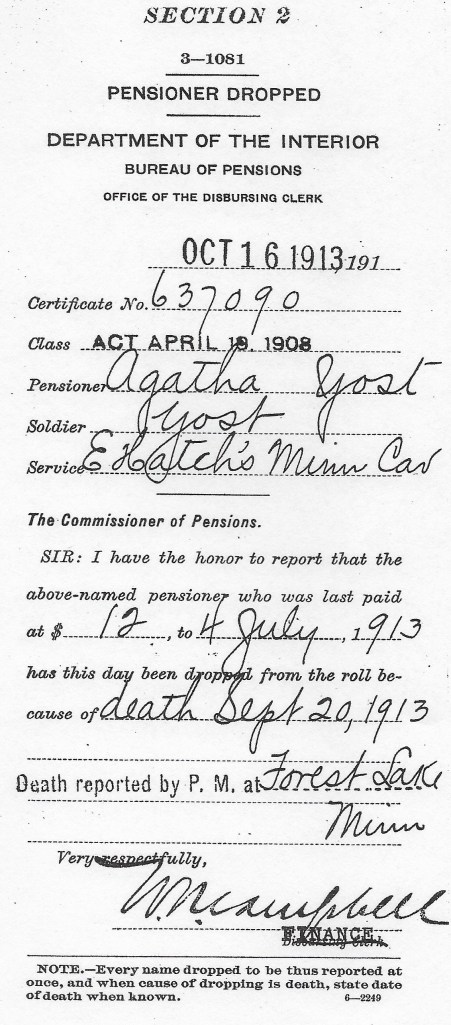 SECTION 2
3—1081
PENSIONER DROPPED
DEPARTMENT OF THE INTERIOR
BUREAU OF PENSIONS
OFFICE OF THE DISBURSING CLERK
OCT 16 1913, 191
Certificate No. 637090
Class ACT APRIL 19, 1908
Pensioner Agatha Yost
Soldier Yost
Service E Hatch's Minn Cav
The Commissioner of Pensions.
SIR: I have the honor to report that the
above-named pensioner who was last paid
at $ 12, to 4 July, 1913
has this day been dropped from the roll be-
cause of death Sept 20, 1913
Death reported by P. M. at Forest Lake
Minn
Very respectfully,
W.N. Campbell
FINANCE.
Disbursing Clerk.
NOTE.—Every name dropped to be thus reported at
once, and when cause of dropping is death, state date
of death when known.
6—2249